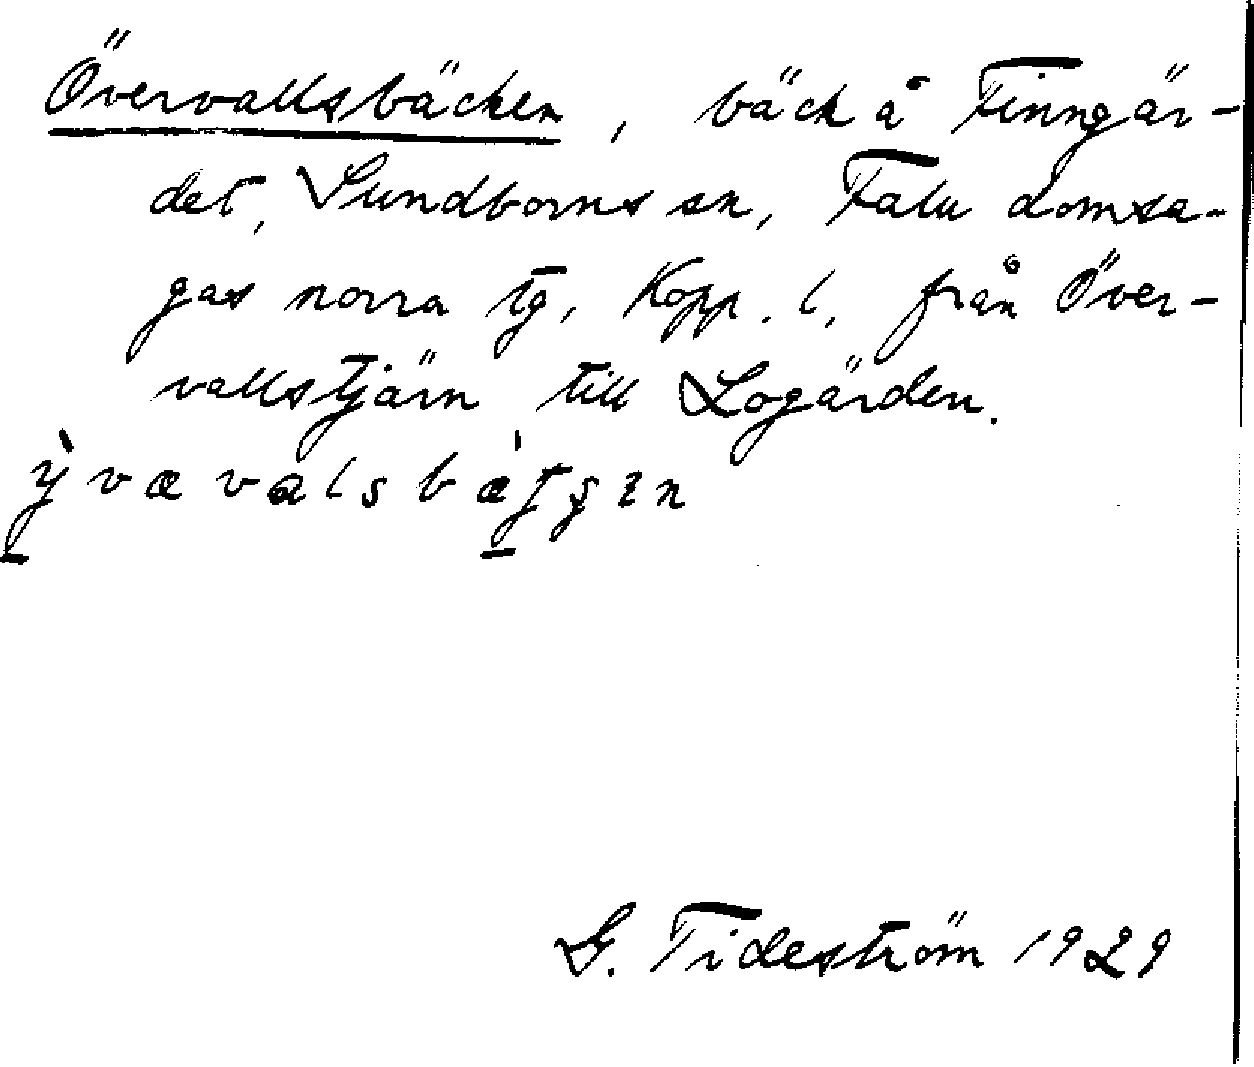 Övervallsbäcken, bäck å Finngär-
det, Sundborns sn, Falu domsa-
gas norra tg, Kopp. l. från Över-
vallstjärn till Logärden.
G. Tideström 1929